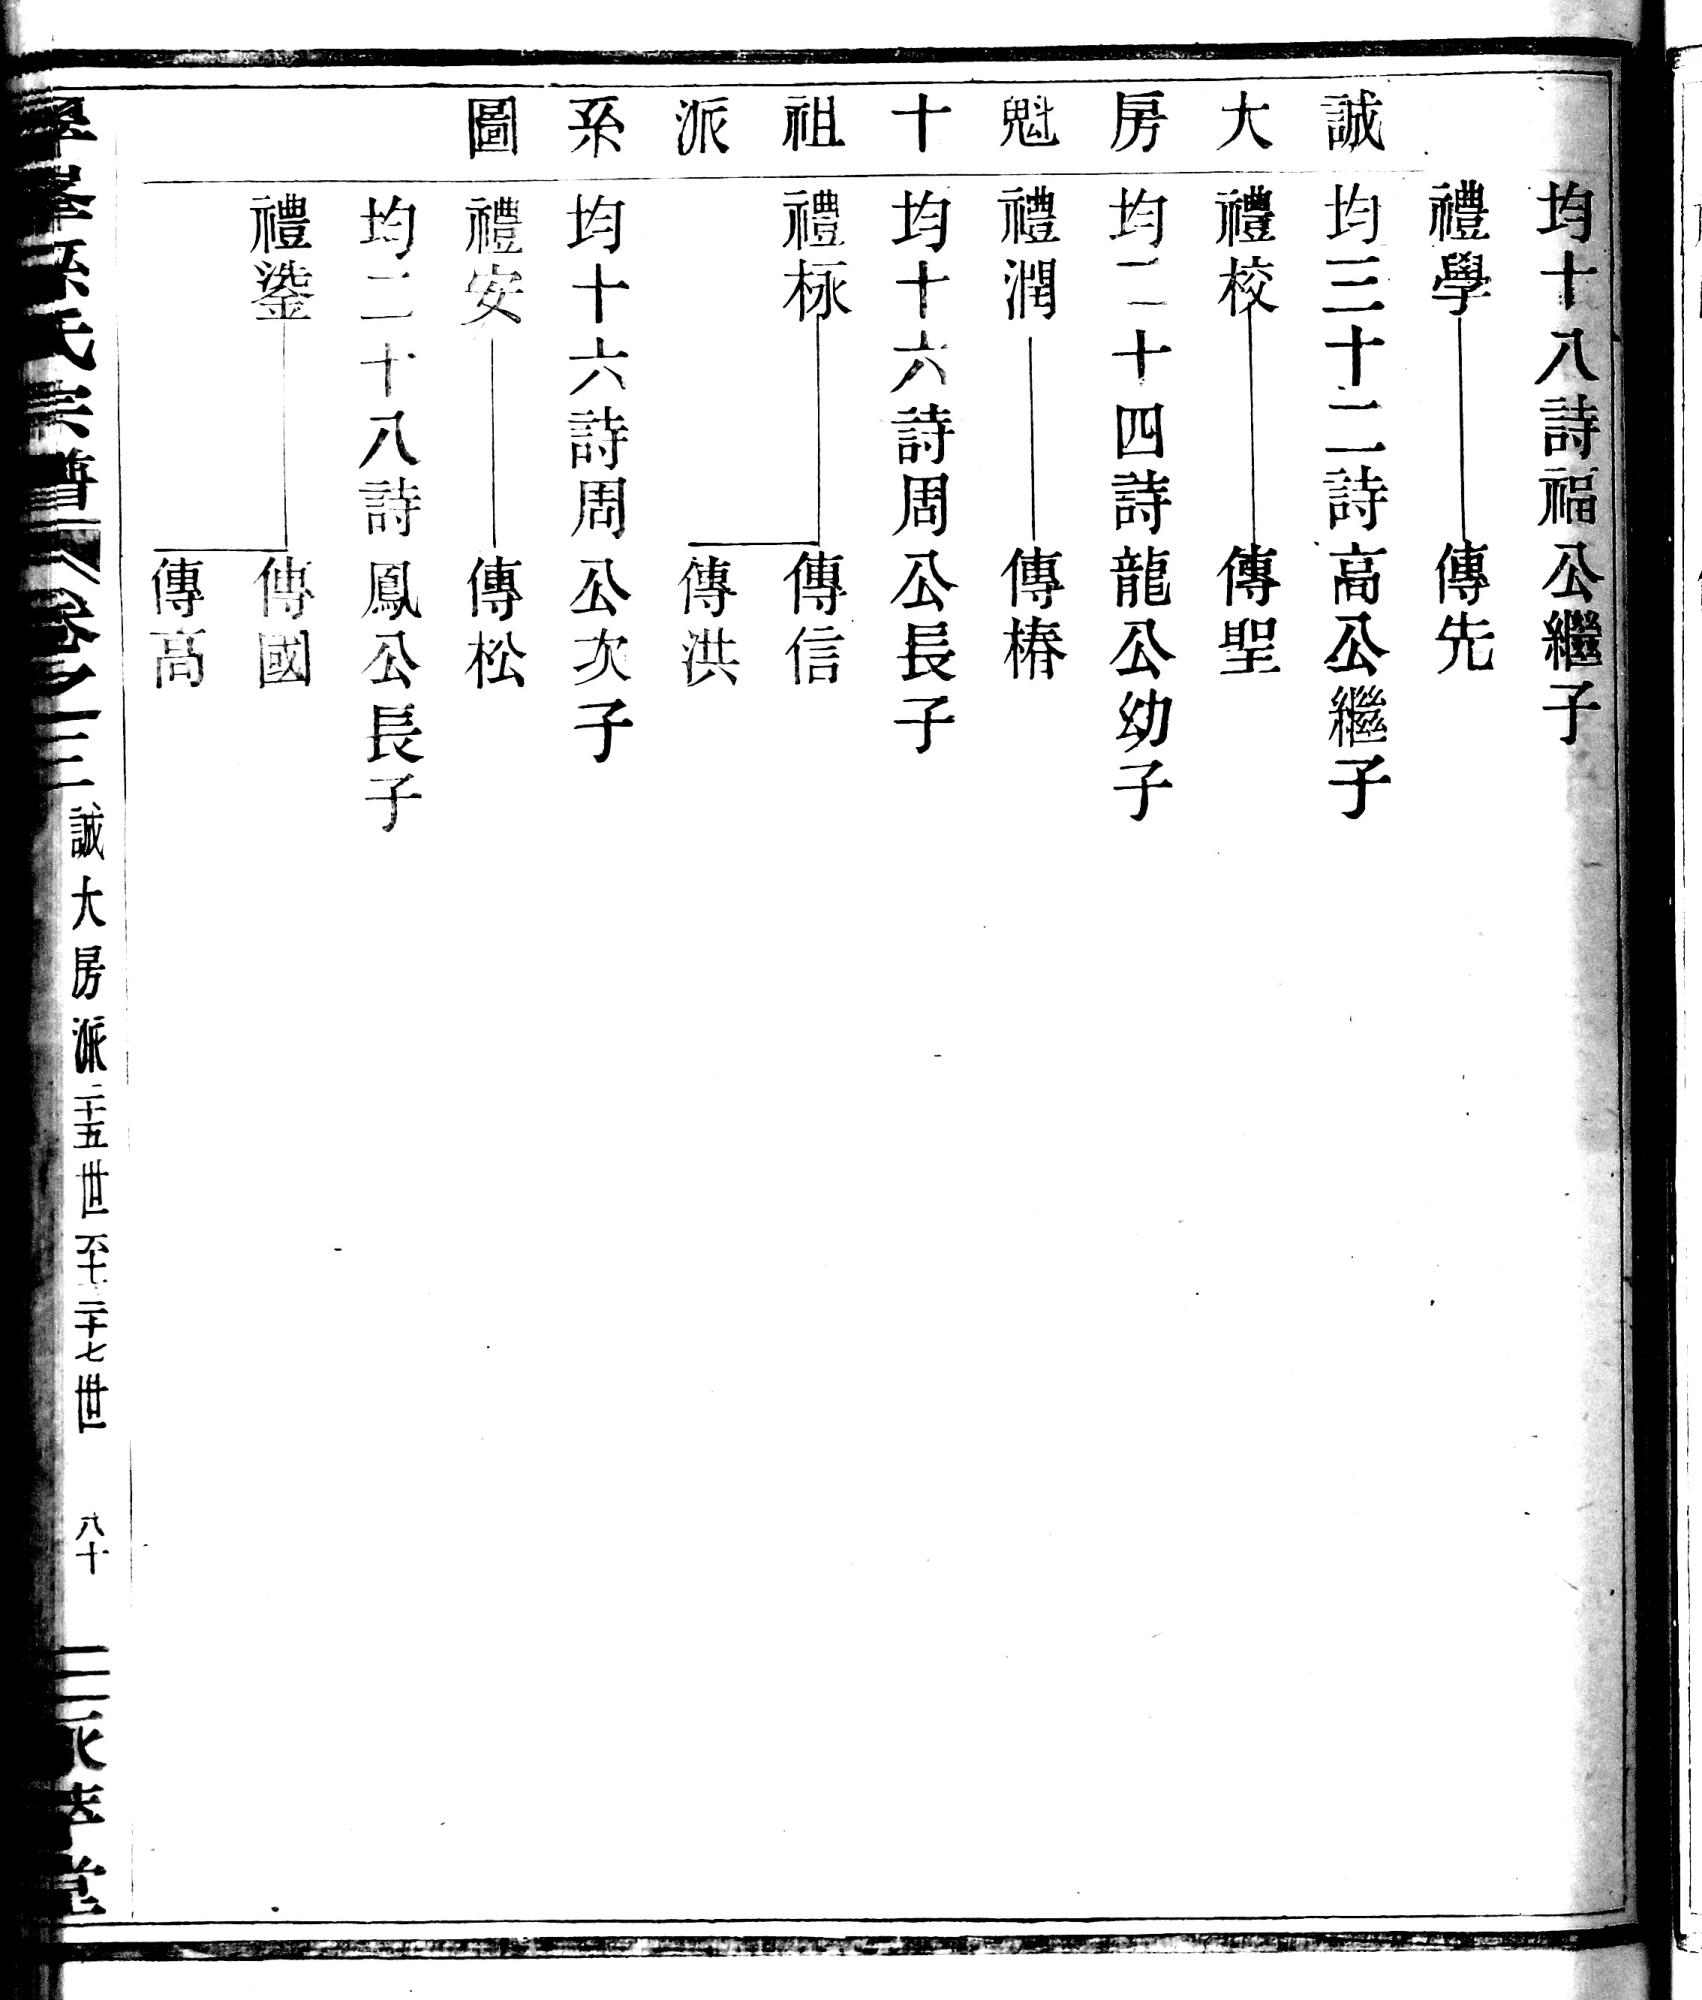 誠大房魁十祖派系圖
均十八詩福公繼子
禮學
傳先
均三十二詩高公繼子
禮校
傳聖
均二十四詩龍公幼子
禮潤
傳椿
均十六詩周公長子
禮椓
傳信
傳洪
均十六詩周公次子
禮安
傳松
均二十八詩鳳公長子
禮鍌
傳國
傳高
氏宗譜
卷之三
誠大房派二十五世至二十七世
八十
堂